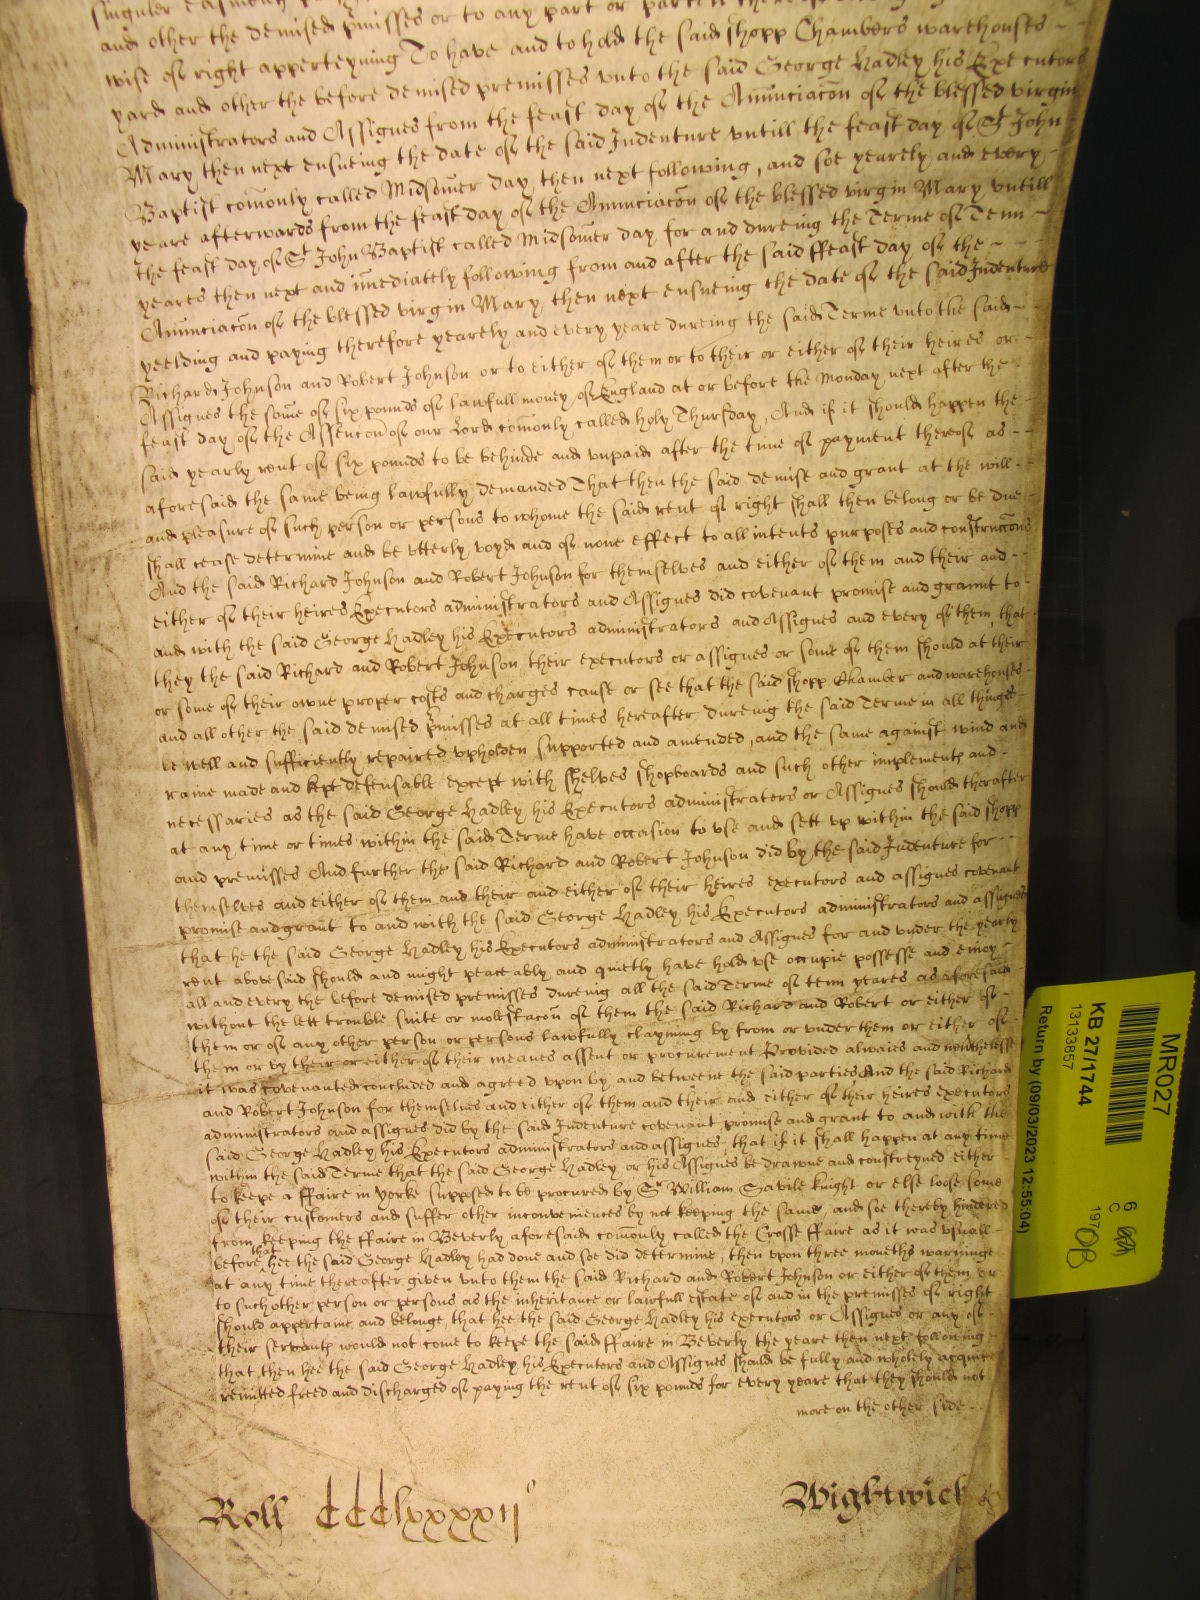 singuler easments
and other the demised p̄misses or to any part or parcell
wise of right apperteyning To have and to hold the said shopp Chambers warehouses
yard and other the before demised premisses vnto the said George Hadley his Executors
Administrators and Assignes from the feast day of the Anunciacōn of the blessed virgin
Mary then next ensueing the date of the said Indenture vntill the feast day of St John
Baptist com̄only called Midsom̄er day then next following, and soe yearely and every
yeare afterwards from the feast day of the Anunciacōn of the blessed virgin Mary vntill
the feast day of St John Baptist called Midsom̄er day for and dureing the Terme of Tenn
yeares then next and im̄ediately following from and after the said ffeast day of the
Anunciacōn of the blessed virgin Mary then next ensueing the date of the said Indenture
yeelding and paying therefore yearely and every yeare dureing the said Terme vnto the said
Richard Johnson and Robert Johnson or to either of them or to their or either of their heires or
Assignes the som̄e of six pounds of lawfull money of England at or before the Monday next after the
feast day of the Assencōn of our Lord com̄only called holy Thursday, And if it should happen the
said yearly rent of six pounds to be behinde and vnpaid after the time of payment thereof as
aforesaid the same being lawfully demanded That then the said demise and grant at the will
and pleasure of such person or persons to whome the said rent of right shall then belong or be due
shall cease determine and be vtterly voyd and of none effect to all intents purposes and construccōns
And the said Richard Johnson and Robert Johnson for themselves and either of them and their and
either of their heires Executors administrators and Assignes did covenant promise and graunt to
and with the said George Hadley his Executors administrators and Assignes and every of them, that
they the said Richard and Robert Johnson their executors or assignes or some of them should at their
or some of their owne proper costs and charges cause or see that the said shopp Chamber and warehouses
and all other the said demised p̄misses at all times hereafter dureing the said Terme in all things
be well and sufficiently repaired vpholden supported and amended, and the same against wind and
raine made and kept defensable except with shelves shopboards and such other implements and
necessaries as the said George Hadley his Executors administrators or Assignes should therafter
at any time or times within the said Terme have occasion to vse and sett vp within the said shopp
and premisses And further the said Richard and Robert Johnson did by the said Indenture for
themselves and either of them and their and either of their heires executors and assignes covenant
promise and grant to and with the said George Hadley his Executors administrators and assignes
that he the said George Hadley his Executors administrators and Assignes for and vnder the yearly
rent abovesaid should and might peaceably and quietly have hold vse occupie possesse and enioy
all and every the before demised premisses dureing all the said Terme of tenn yeares as aforesaid
without the lett trouble suite or molestacōn of them the said Richard and Robert or either of
them or of any other person or persons lawfully clayming by from or vnder them or either of
them or by their or either of their meanes assent or procurement Provided alwaies and neverthelesse
it was covenanted concluded and agreed vpon by and betweene the said parties And the said Richard
and Robert Johnson for themselves and either of them and their and either of their heires executors
administrators and assignes did by the said Indenture covenant promise and grant to and with the
said George Hadley his Executors administrators and assignes, that if it shall happen at any time
within the said Terme that the said George Hadley or his Assignes be drawne and constreyned either
to keepe a ffaire in Yorke supposed to be procured by Sr William Savile knight or else loose some
of their customers and suffer other inconveniences by not keeping the same and soe thereby hindered
from keeping the ffaire in Beverly aforesaid com̄only called the Crosse ffaire as it was vsuall
before that hee the said George Hadley had done and soe did determine, then vpon three moneths warninge
at any time thereafter given vnto them the said Richard and Robert Johnson or either of them or
to such other person or persons as the inheritance or lawfull estate of and in the premisses of right
should appertaine and belonge that hee the said George Hadley his executors or Assignes or any of
their servants would not come to keepe the said ffaire in Beverly the yeare then next following
that then hee the said George Hadley his Executors and Assignes should be fully and wholely acquitt
remitted freed and discharged of paying the rent of six pounds for every yeare that they should not
more on the other side
Roll CCClxxxxijo
Wightwick
MR027
KB 27/1744
13133857
Return by (09/03/2023 12:55:04)
6
C
197